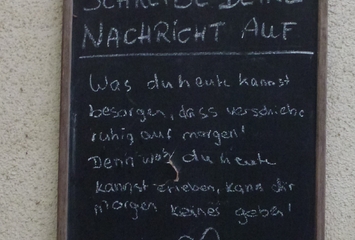 SCHREIBE DEINE
NACHRICHT AUF
Was du heute kannst
besorgen, dass verschiebe
ruhig auf morgen!
Denn was du heute
kannst erleben, kann dir
morgen keines geben!